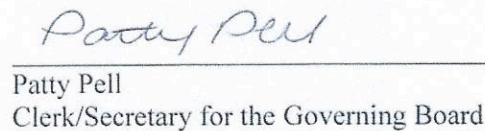 Patty Pell
Patty Pell
Clerk/Secretary for the Governing Board